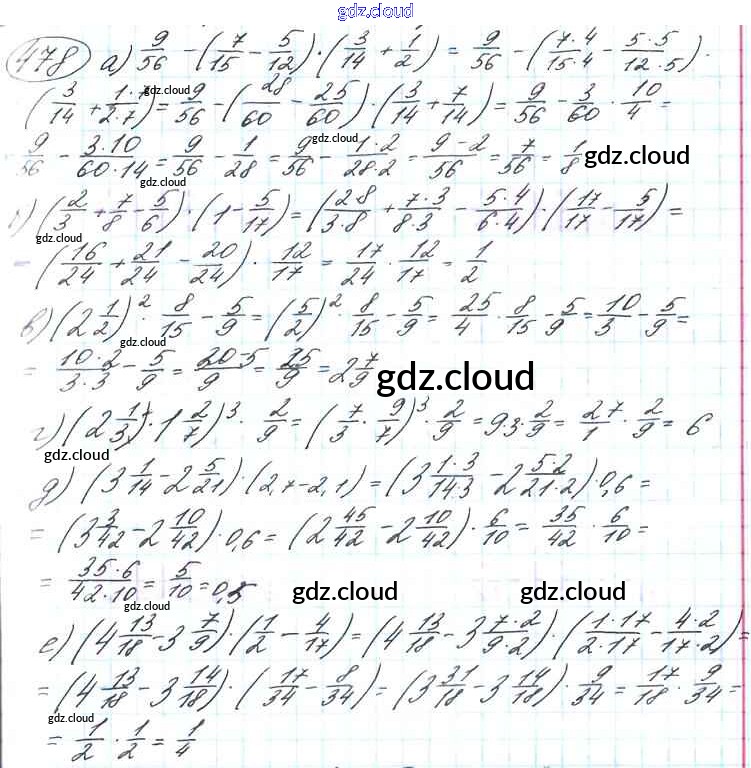 gdz.cloud
478 а) 9/56 − (7/15 − 5/12) · (3/14 + 1/2) = 9/56 − (7·4/15·4 − 5·5/12·5) ·
(3/14 + 1·7/2·7) = 9/56 − (28/60 − 25/60) · (3/14 + 7/14) = 9/56 − 3/60 · 10/4 =
9/56 − 3·10/60·14 = 9/56 − 1/28 = 9/56 − 1·2/28·2 = 9−2/56 = 7/56 = 1/8 gdz.cloud
) (2/3 + 7/8 − 5/6) · (1 − 5/17) = (2·8/3·8 + 7·3/8·3 − 5·4/6·4) (17/17 − 5/17) =
− (16/24 + 21/24 − 20/24) · 12/17 = 17/24 · 12/17 = 1/2
в) (2 1/2)² · 8/15 − 5/9 = (5/2)² · 8/15 − 5/9 = 25/4 · 8/15 − 5/9 = 10/3 − 5/9 =
= 10·2/3·3 − 5/9 = 20−5/9 = 25/9 = 2 7/9 gdz.cloud
г) (2 1/3 · 1 2/7)³ · 2/9 = (7/3 · 9/7)³ · 2/9 = 9·3 · 2/9 = 27/1 · 2/9 = 6
gdz.cloud
д) (3 1/14 − 2 5/21) · (2,7 − 2,1) = (3 1·3/14·3 − 2 5·2/21·2) · 0,6 =
= (3 3/42 − 2 10/42) · 0,6 = (2 45/42 − 2 10/42) · 6/10 = 35/42 · 6/10 =
= 35·6/42·10 = 5/10 = 0,5 gdz.cloud gdz.cloud
е) (4 13/18 − 3 7/9) · (1/2 − 4/17) = (4 13/18 − 3 7·2/9·2) · (1·17/2·17 − 4·2/17·2) =
= (4 13/18 − 3 14/18) · (17/34 − 8/34) = (3 31/18 − 3 14/18) · 9/34 = 17/18 · 9/34 =
gdz.cloud
= 1/2 · 1/2 = 1/4